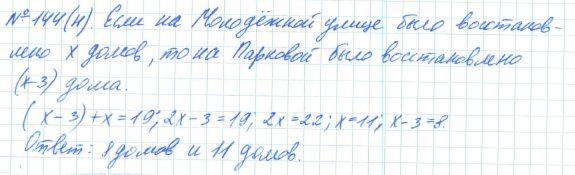 № 144(н). Если на Молодёжной улице было восстанов-
лено х домов, то на Парковой было восстановлено
(х-3) дома.
(х-3)+х=19; 2х-3=19; 2х=22; х=11; х-3=8.
Ответ: 8 домов и 11 домов.